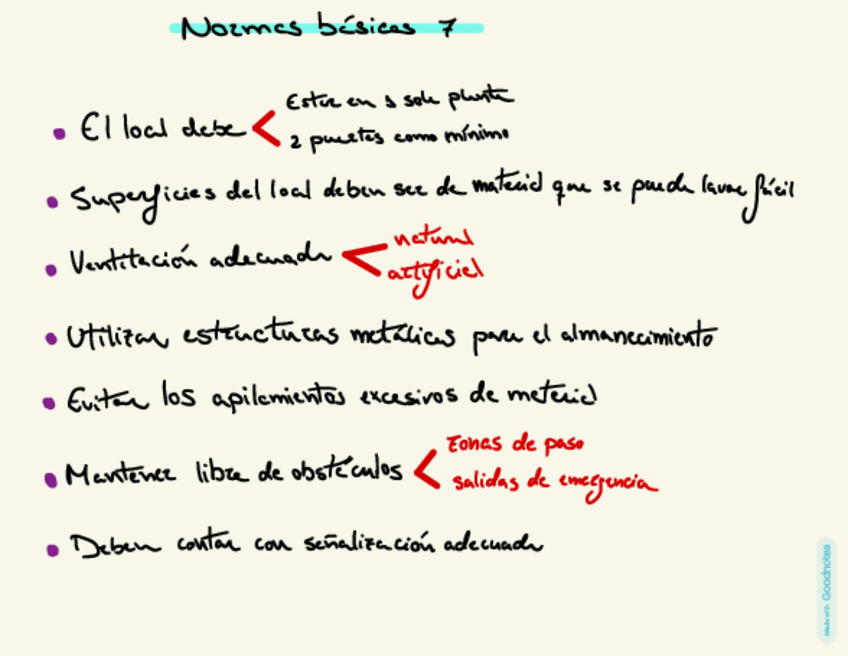 Normas básicas 7
El local debe
Estar en 1 sola planta
2 puertas como mínimo
Superficies del local deben ser de material que se pueda lavar fácil
Ventitación adecuada
natural
artificial
Utilizar estructuras metálicas para el almanecimiento
Evitar los apilamientos excesivos de material
Mantener libre de obstáculos
Zonas de paso
salidas de emergencia
Deben contar con señalización adecuada
Made with Goodnotes